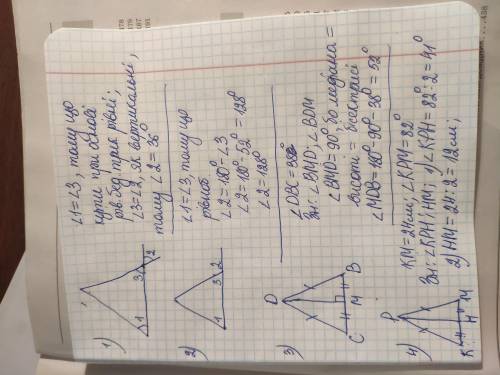 1)
1
3
2
∠1=∠3, тому що
кути при основі
рів.бед. трик. рівні;
∠3=∠2, як вертикальні,
тому ∠2=36°
2)
1
3
2
∠1=∠3, тому що
рівноб.
∠2=180°-∠3
∠2=180°-52°=128°
∠2=128°
3)
D
C
M
B
∠DBC=38°
Зн: ∠BMD; ∠BDM
∠BMD=90°, бо медіана =
висоті = бісектрисі
∠MDB=180°-90°-38°=52°
4)
P
K
H
M
KM=24см; ∠KPM=82°
Зн: ∠KPH; HM; 1) ∠KPH=82°:2=41°
2) HM=24:2=12см;